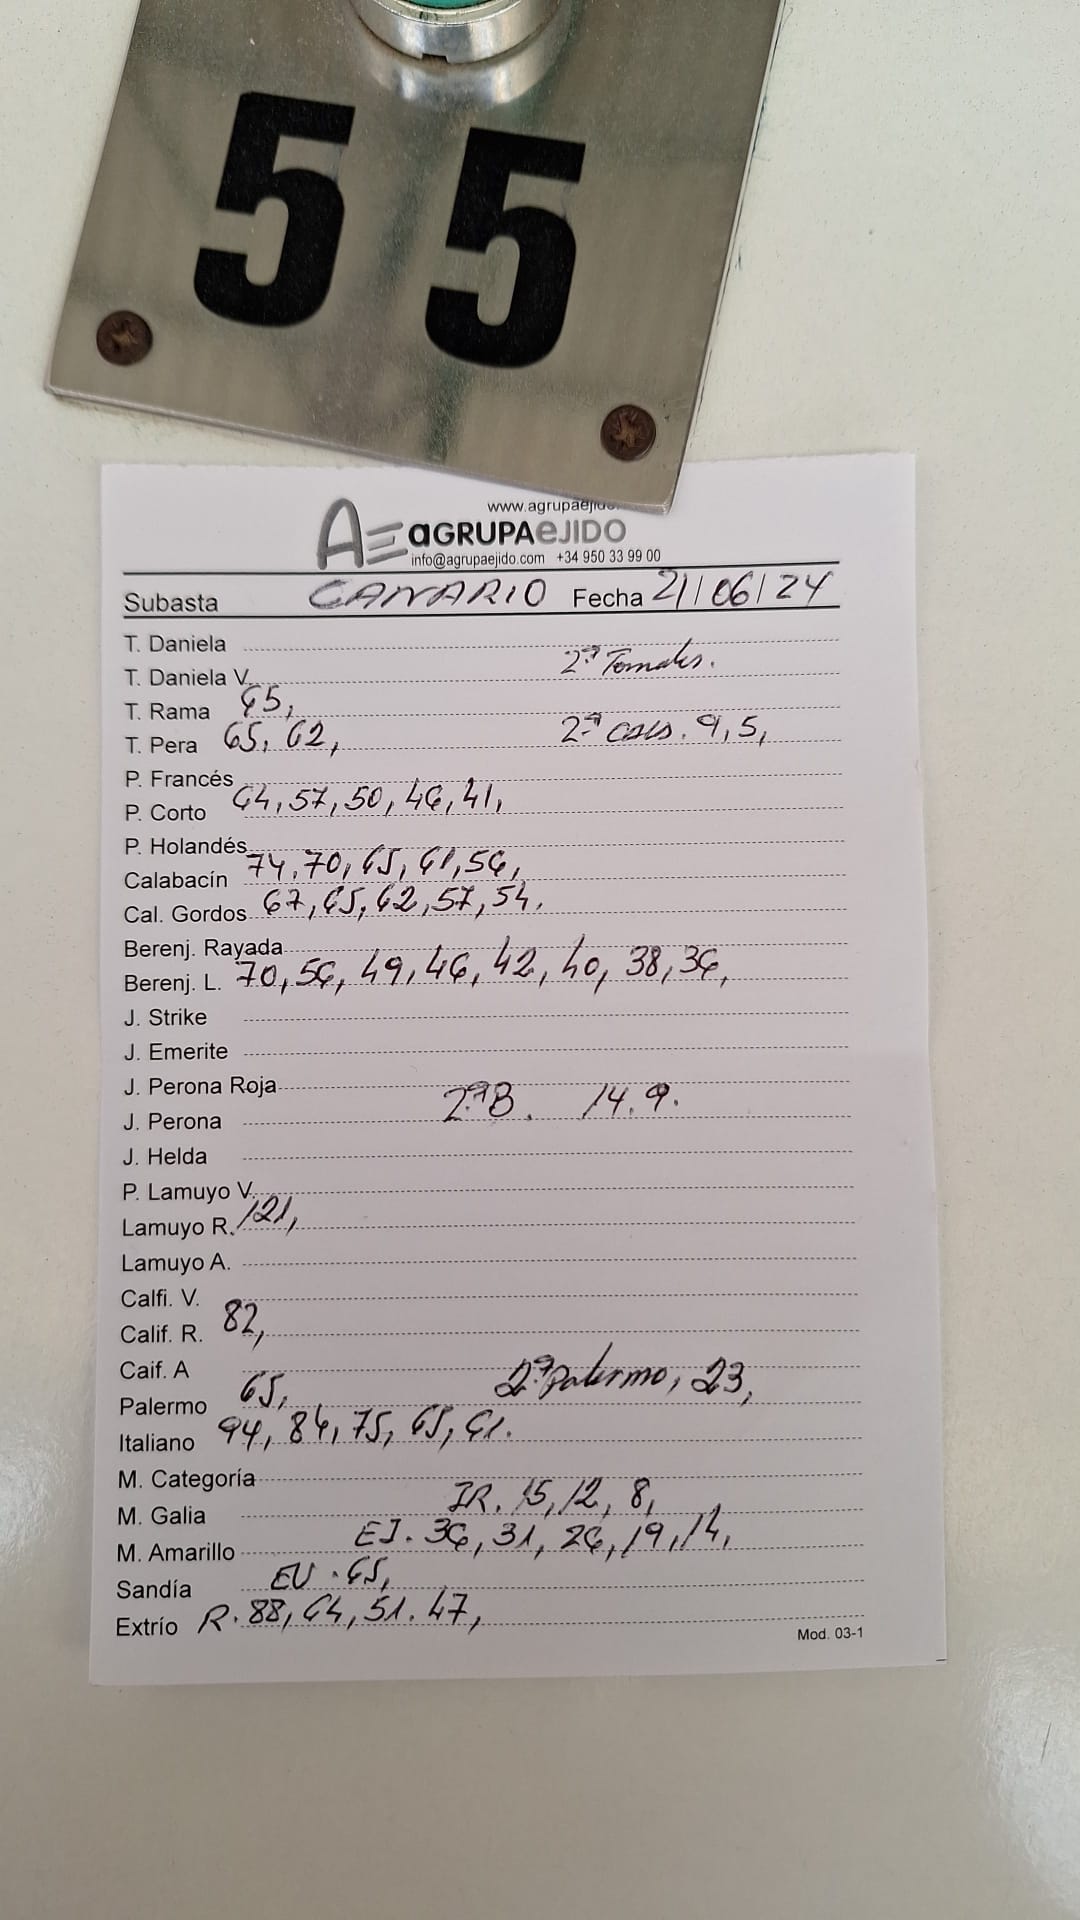 55
www.agrupaejido.
AE aGRUPAeJIDO
info@agrupaejido.com +34 950 33 99 00
Subasta CANARIO Fecha 21/06/24
T. Daniela
T. Daniela V. 2ª Tomates.
T. Rama 65,
T. Pera 65, 62, 2ª cals. 9, 5,
P. Francés
P. Corto 64, 57, 50, 46, 41,
P. Holandés
Calabacín 74, 70, 65, 61, 56,
Cal. Gordos 67, 65, 62, 57, 54.
Berenj. Rayada
Berenj. L. 70, 56, 49, 46, 42, 40, 38, 36,
J. Strike
J. Emerite
J. Perona Roja
J. Perona 2ªB. 14. 9.
J. Helda
P. Lamuyo V.
Lamuyo R. 121,
Lamuyo A.
Calfi. V.
Calif. R. 82,
Caif. A
Palermo 65, 2ª Palermo, 23,
Italiano 94, 84, 75, 65, 61.
M. Categoría
M. Galia IR. 15, 12, 8,
M. Amarillo EJ. 36, 31, 26, 19, 14,
Sandía EU. 65,
Extrío R. 88, 64, 51. 47,
Mod. 03-1